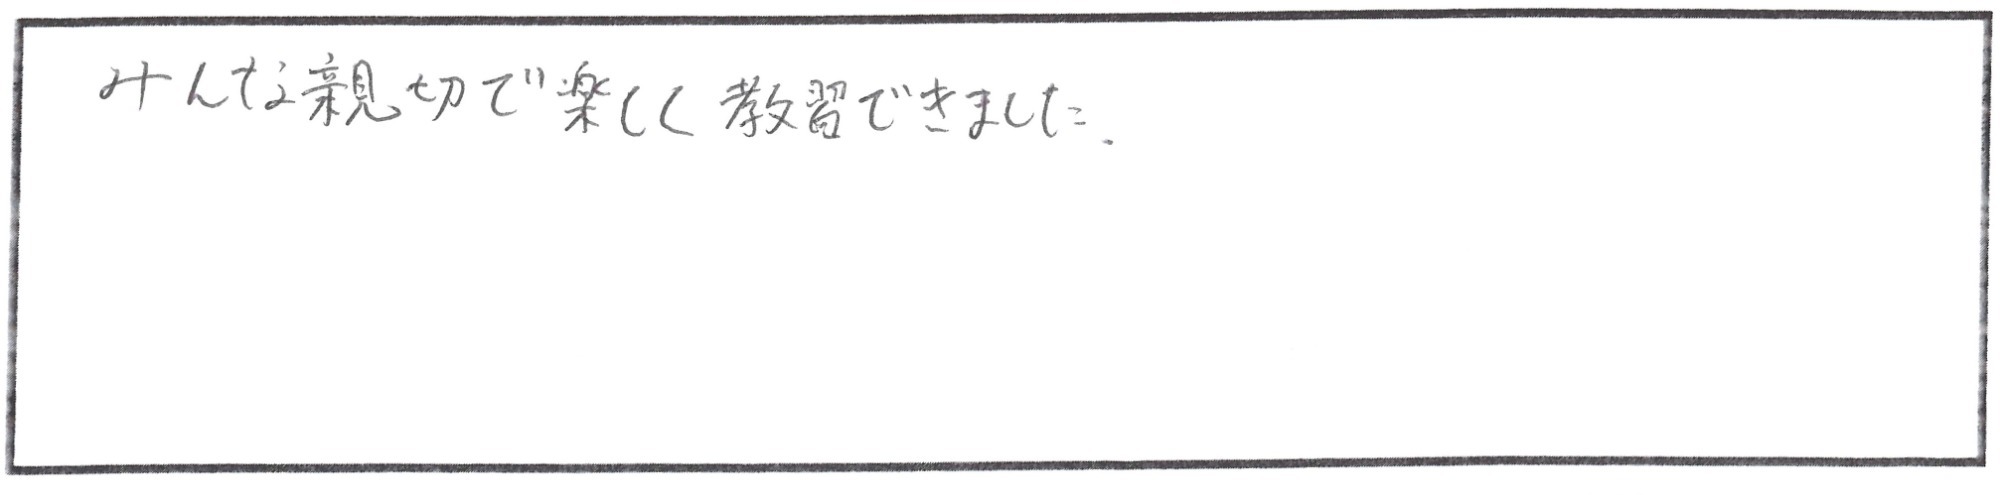 みんな親切で楽しく教習できました.